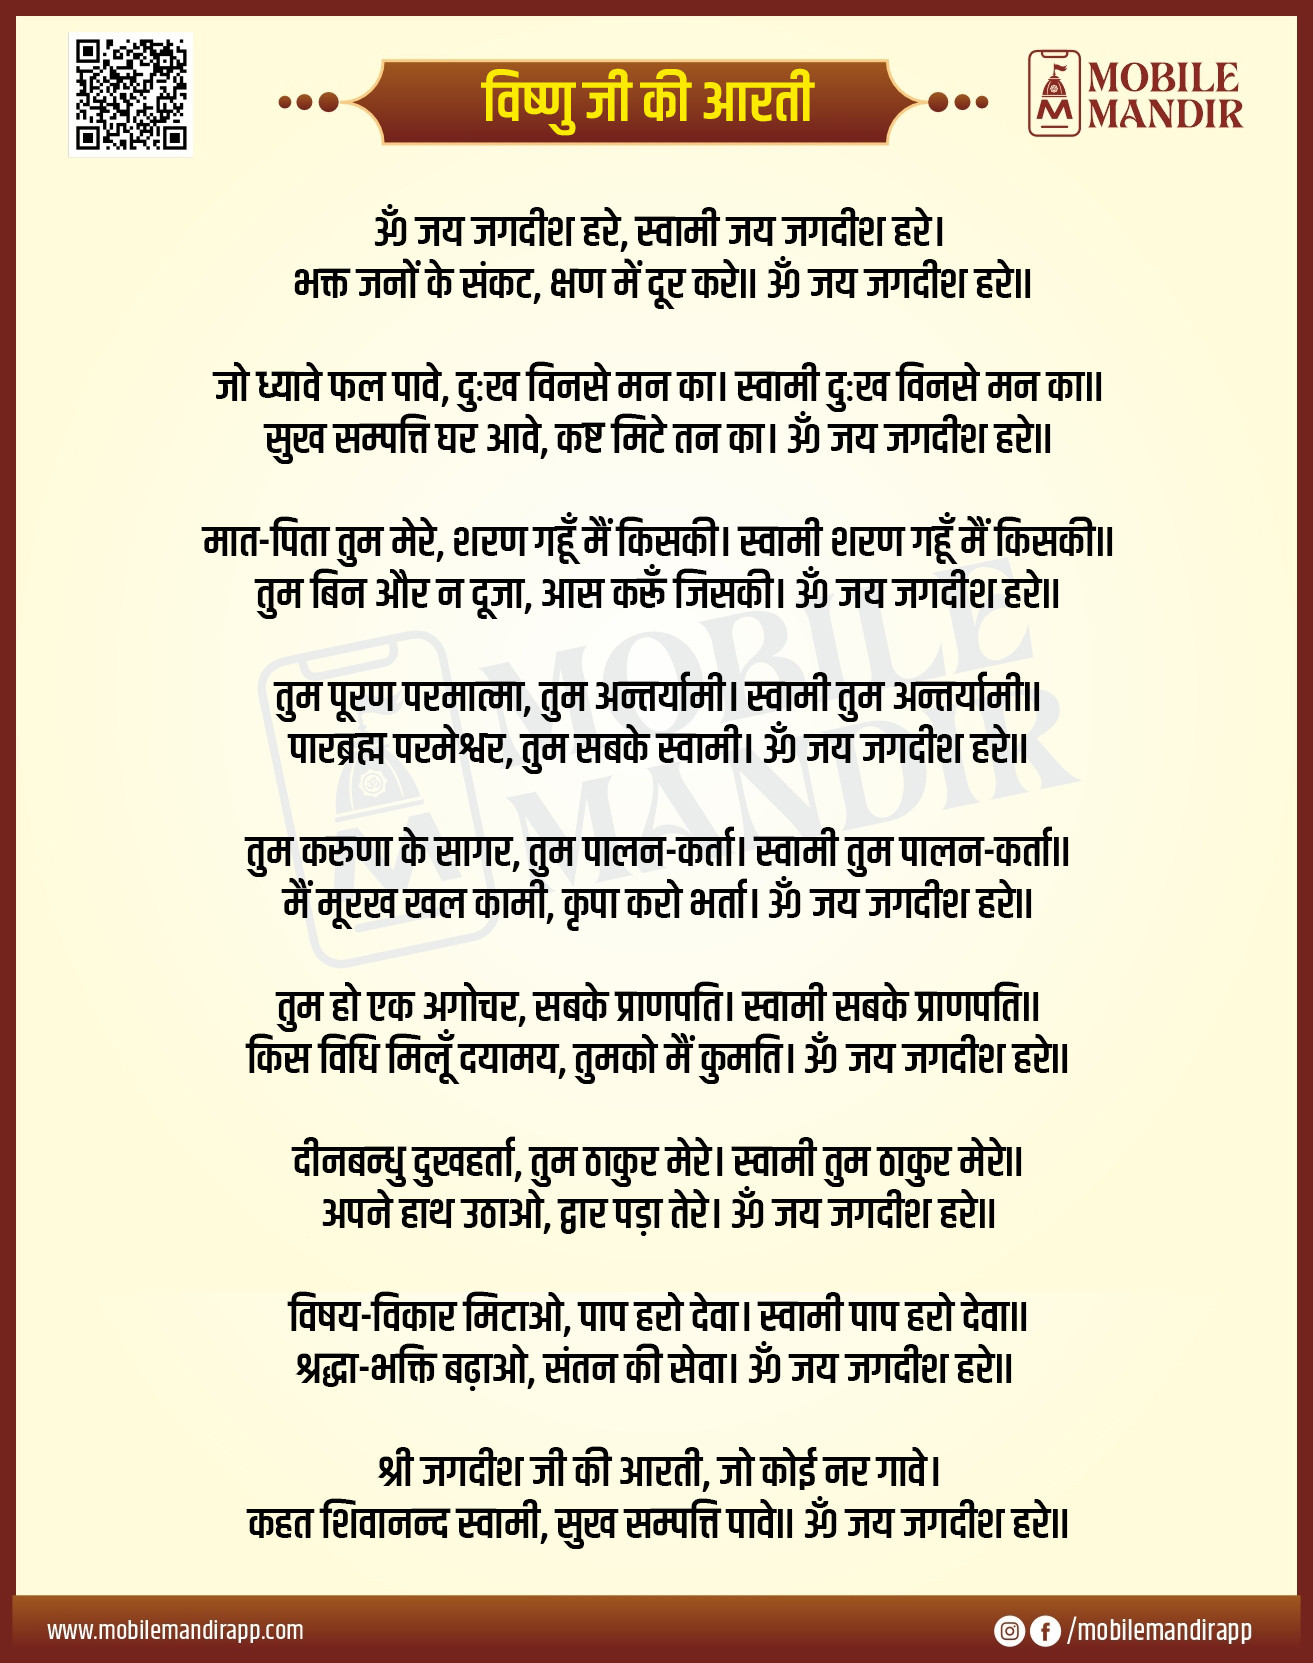 विष्णु जी की आरती
MOBILE
MANDIR
ॐ जय जगदीश हरे, स्वामी जय जगदीश हरे।
भक्त जनों के संकट, क्षण में दूर करे॥ ॐ जय जगदीश हरे॥
जो ध्यावे फल पावे, दुःख विनसे मन का। स्वामी दुःख विनसे मन का॥
सुख सम्पत्ति घर आवे, कष्ट मिटे तन का। ॐ जय जगदीश हरे॥
मात-पिता तुम मेरे, शरण गहूँ मैं किसकी। स्वामी शरण गहूँ मैं किसकी॥
तुम बिन और न दूजा, आस करूँ जिसकी। ॐ जय जगदीश हरे॥
तुम पूरण परमात्मा, तुम अन्तर्यामी। स्वामी तुम अन्तर्यामी॥
पारब्रह्म परमेश्वर, तुम सबके स्वामी। ॐ जय जगदीश हरे॥
तुम करुणा के सागर, तुम पालन-कर्ता। स्वामी तुम पालन-कर्ता॥
मैं मूरख खल कामी, कृपा करो भर्ता। ॐ जय जगदीश हरे॥
तुम हो एक अगोचर, सबके प्राणपति। स्वामी सबके प्राणपति॥
किस विधि मिलूँ दयामय, तुमको मैं कुमति। ॐ जय जगदीश हरे॥
दीनबन्धु दुखहर्ता, तुम ठाकुर मेरे। स्वामी तुम ठाकुर मेरे॥
अपने हाथ उठाओ, द्वार पड़ा तेरे। ॐ जय जगदीश हरे॥
विषय-विकार मिटाओ, पाप हरो देवा। स्वामी पाप हरो देवा॥
श्रद्धा-भक्ति बढ़ाओ, संतन की सेवा। ॐ जय जगदीश हरे॥
श्री जगदीश जी की आरती, जो कोई नर गावे।
कहत शिवानन्द स्वामी, सुख सम्पत्ति पावे॥ ॐ जय जगदीश हरे॥
MOBILE
MANDIR
www.mobilemandirapp.com
/mobilemandirapp